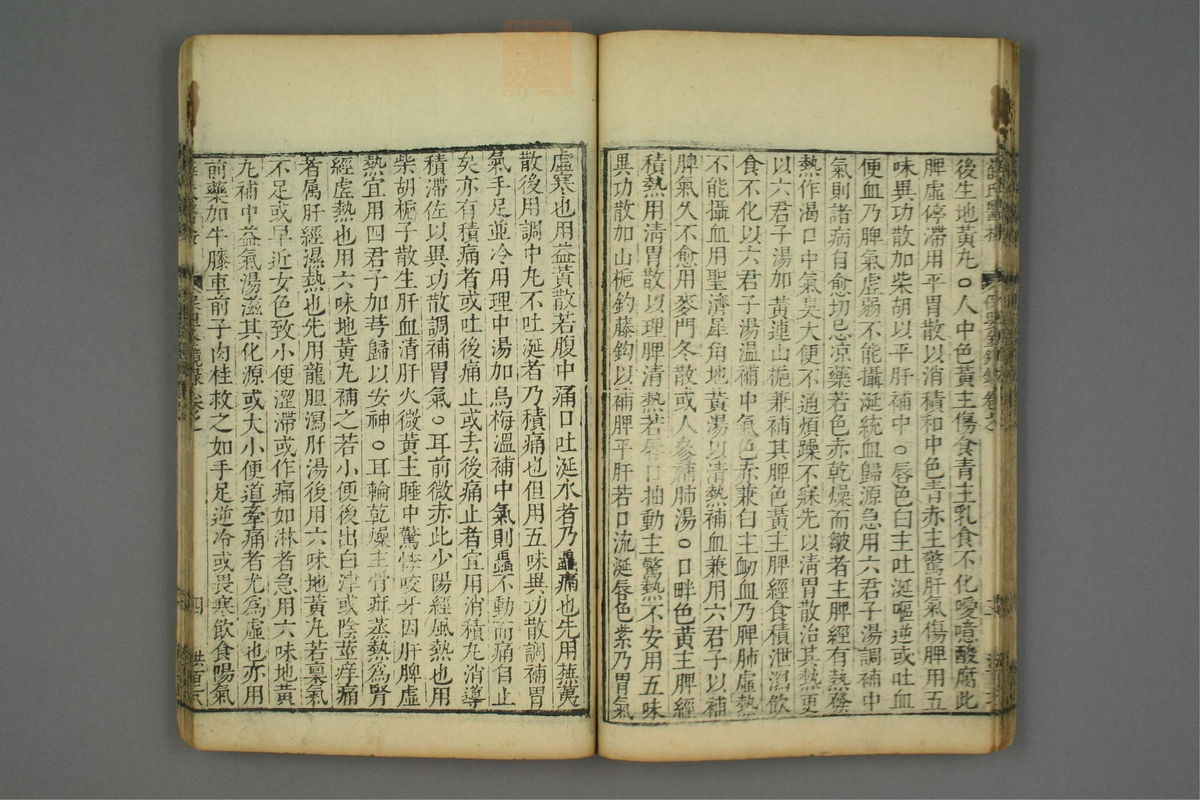 薛氏醫按
保嬰金鏡錄 卷之
後生地黃丸○人中色黃主傷食青主乳食不化噯噫酸腐此
脾虛停滯用平胃散以消積和中色青赤主驚肝氣傷脾用五
味異功散加柴胡以平肝補中○唇色白主吐涎嘔逆或吐血
便血乃脾氣虛弱不能攝涎統血歸源急用六君子湯調補中
氣則諸病自愈切忌凉藥若色赤乾燥而皺者主脾經有熱
熱作渴口中氣臭大便不通煩躁不寐先以清胃散治其熱更
以六君子湯加黃連山梔兼補其脾色黃主脾經食積泄瀉飲
食不化以六君子湯溫補中氣色赤兼白主衂血乃脾肺虛熱
不能攝血用聖濟犀角地黃湯以清熱補血兼用六君子以補
脾氣久不愈用麥門冬散或人參補肺湯○口畔色黃主脾經
積熱用清胃散以理脾清熱若唇口抽動主驚熱不安用五味
異功散加山梔鈎藤鈎以補脾平肝若口流涎唇色紫乃胃氣
虛寒也用益黃散若腹中痛口吐涎水者乃蟲痛也先用蕪荑
散後用調中丸不吐涎者乃積痛也但用五味異功散調補胃
氣手足並冷用理中湯加烏梅溫補中氣則蟲不動而痛自止
矣亦有積痛者或吐後痛止或去後痛止者宜用消積丸消導
積滯佐以異功散調補胃氣○耳前微赤此少陽經風熱也用
柴胡梔子散生肝血清肝火微黃主睡中驚悸咬牙因肝脾虛
熱宜用四君子加芎歸以安神○耳輪乾燥主骨疳蒸熱爲腎
經虛熱也用六味地黃丸補之若小便後出白津或陰莖痒痛
者属肝經濕熱也先用龍胆瀉肝湯後用六味地黃丸若稟氣
不足或早近女色致小便澀滯或作痛如淋者急用六味地黃
丸補中益氣湯滋其化源或大小便道牽痛者尤爲虛也亦用
前藥加牛膝車前子肉桂救之如手足逆冷或畏寒飲食陽氣
保嬰金鏡錄 卷之
四